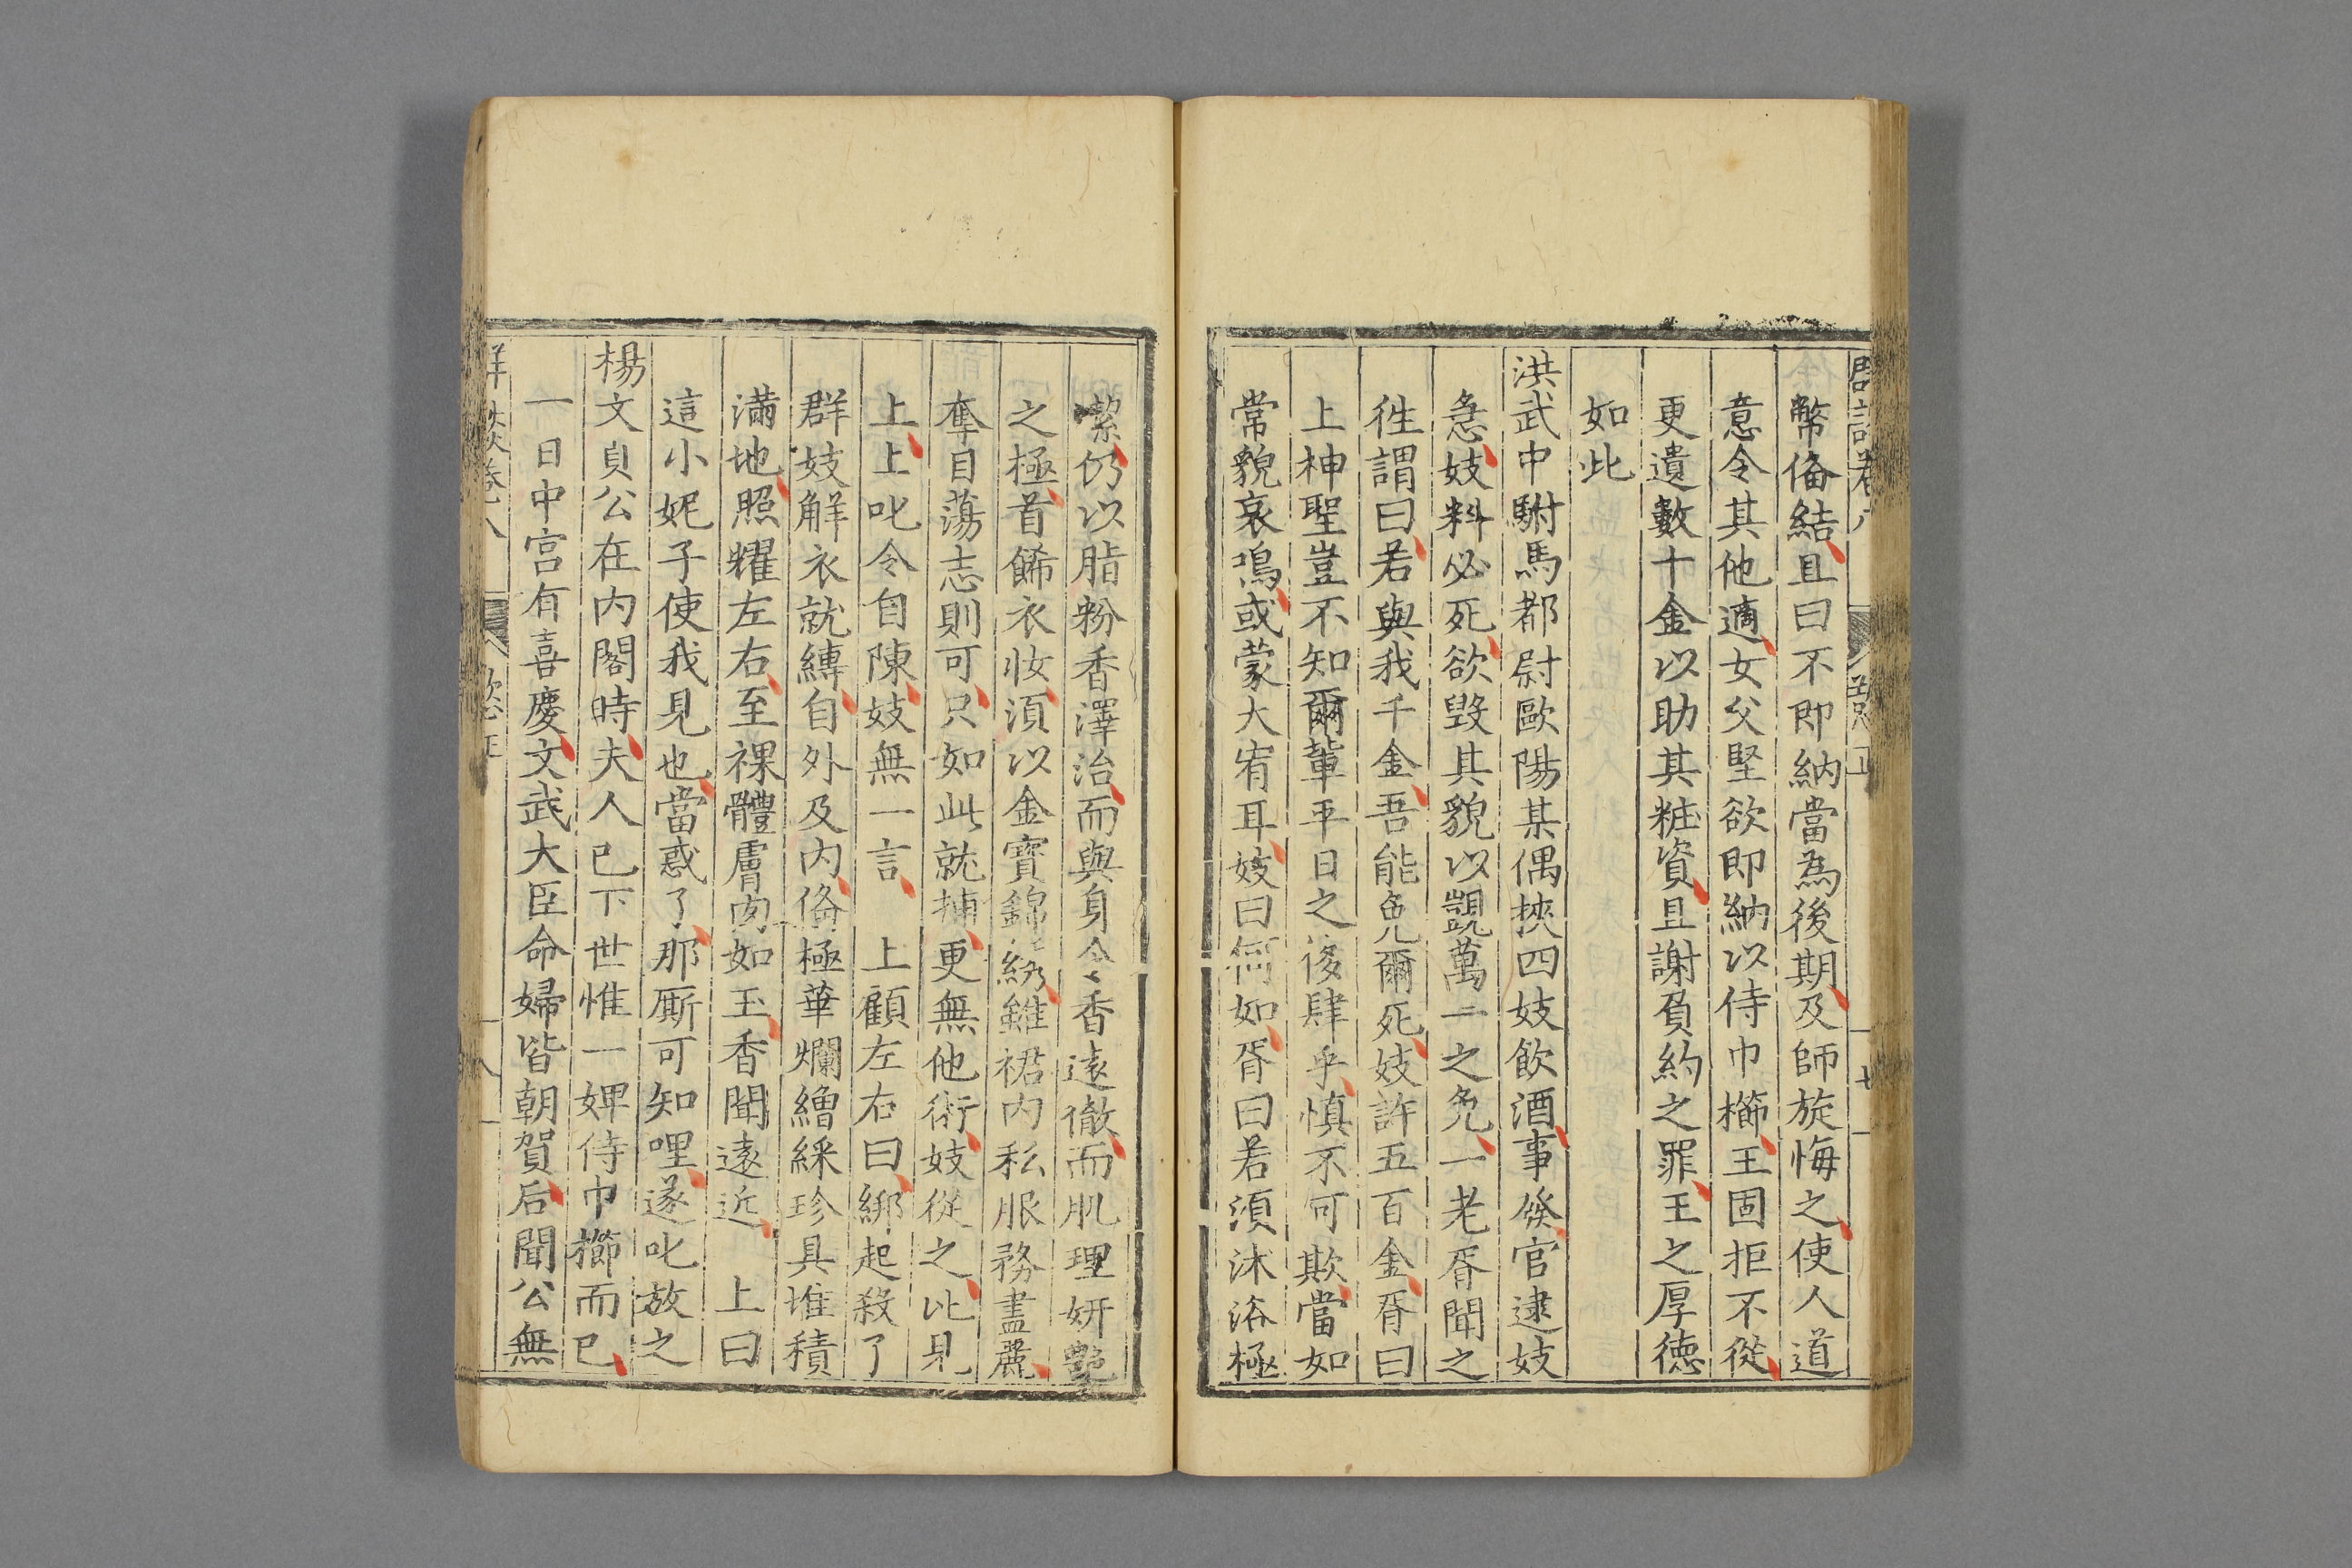 幣俻結且曰不即納當為後期及師旋悔之使人道
意令其他適女父堅欲即納以侍巾櫛王固拒不從
更遺數十金以助其粧資且謝負約之罪王之厚德
如此
洪武中駙馬都尉歐陽某偶挾四妓飲酒事發官逮妓
急妓料必死欲毀其貌以覬萬一之免一老胥聞之
徃謂曰若與我千金吾能免爾死妓許五百金胥曰
上神聖豈不知爾軰平日之侈肆乎慎不可欺當如
常貌哀鳴或蒙大宥耳妓曰何如胥曰若須沐浴極
潔仍以脂粉香澤治而與身令香遠徹而肌理妍艷
之極首餙衣妝須以金寶錦綉雖裙内私服務盡麗
奪目蕩志則可只如此就捕更無他術妓從之比見
上上叱令自陳妓無一言　上顧左右曰綁起殺了
群妓解衣就縳自外及内俻極華爛繒綵珍具堆積
滿地照耀左右至裸體膚肉如玉香聞遠近　上曰
這小妮子使我見也當惑了那厮可知哩遂叱放之
楊文貞公在内閣時夫人已下世惟一婢侍巾櫛而已
一日中宮有喜慶文武大臣命婦皆朝賀后聞公無